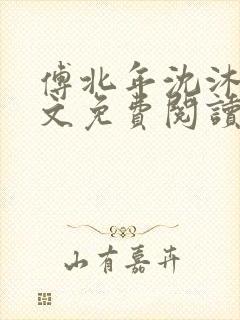 傅北年沈沐
文免費閱讀
山有嘉卉